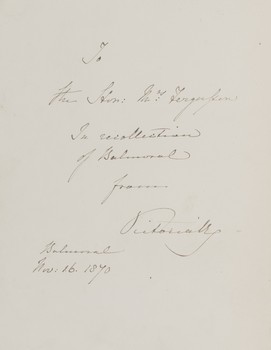 To
the Hon: Mr Ferguson
In recollection
of Balmoral
from
Victoria R
Balmoral
Nov. 16. 1873